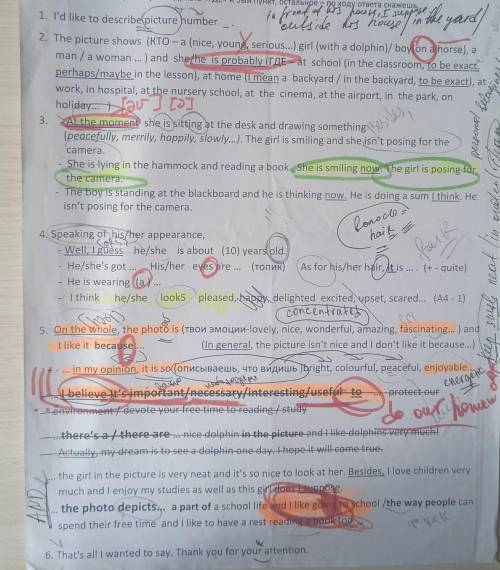 1. I'd like to describe picture number _ .
outside his house / in the yard /
2. The picture shows (КТО – a (nice, young, serious...) girl (with a dolphin)/ boy (on a horse), a
man / a woman ... ) and she/he is probably (ГДЕ – at school (in the classroom, to be exact,
perhaps/maybe in the lesson), at home (I mean a backyard / in the backyard, to be exact), at
work, in hospital, at the nursery school, at the cinema, at the airport, in the park, on
holiday... )
3. At the moment she is sitting at the desk and drawing something
(peacefully, merrily, happily, slowly...). The girl is smiling and she isn't posing for the
camera.
- She is lying in the hammock and reading a book. She is smiling now. The girl is posing for
the camera.
- The boy is standing at the blackboard and he is thinking now. He is doing a sum I think. He
isn't posing for the camera.
4. Speaking of his/her appearance,
- Well, I guess he/she is about (10) years old.
- He/she's got ... His/her eyes are ... (топик) As for his/her hair, it is ... . (+ - quite)
- He is wearing (a ...
- I think he/she looks pleased, happy, delighted excited, upset, scared... (A4 - 1)
concentrated
5. On the whole, the photo is (твои эмоции-lovely, nice, wonderful, amazing, fascinating... ) and
I like it because ... (In general, the picture isn't nice and I don't like it because...)
... in my opinion, it is so (описываешь, что видишь )bright, colourful, peaceful, enjoyable...
energetic
I believe it's important/necessary/interesting/useful to ... protect our
do our homework
environment / devote your free time to reading / study
...there's a / there are ... nice dolphin in the picture and I like dolphins very much!
Actually, my dream is to see a dolphin one day. I hope it will come true.
... the girl in the picture is very neat and it's so nice to look at her. Besides, I love children very
much and I enjoy my studies as well as this girl does I suppose.
AND
... the photo depicts... a part of a school life and I like going to school /the way people can
spend their free time and I like to have a rest reading a book too.
6. That's all I wanted to say. Thank you for your attention.